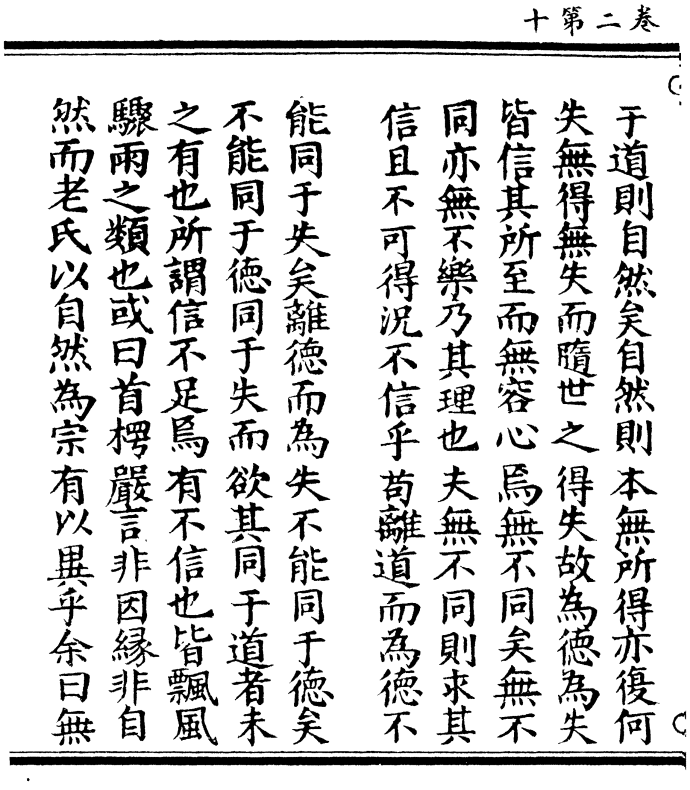 卷二第十
于道則自然矣自然則本無所得亦復何
失無得無失而隨世之得失故為德為失
皆信其所至而無容心焉無不同矣無不
同亦無不樂乃其理也夫無不同則求其
信且不可得況不信乎苟離道而為德不
能同于失矣離德而為失不能同于德矣
不能同于德同于失而欲其同于道者未
之有也所謂信不足焉有不信也皆飄風
驟雨之類也或曰首楞嚴言非因緣非自
然而老氏以自然為宗有以異乎余曰無